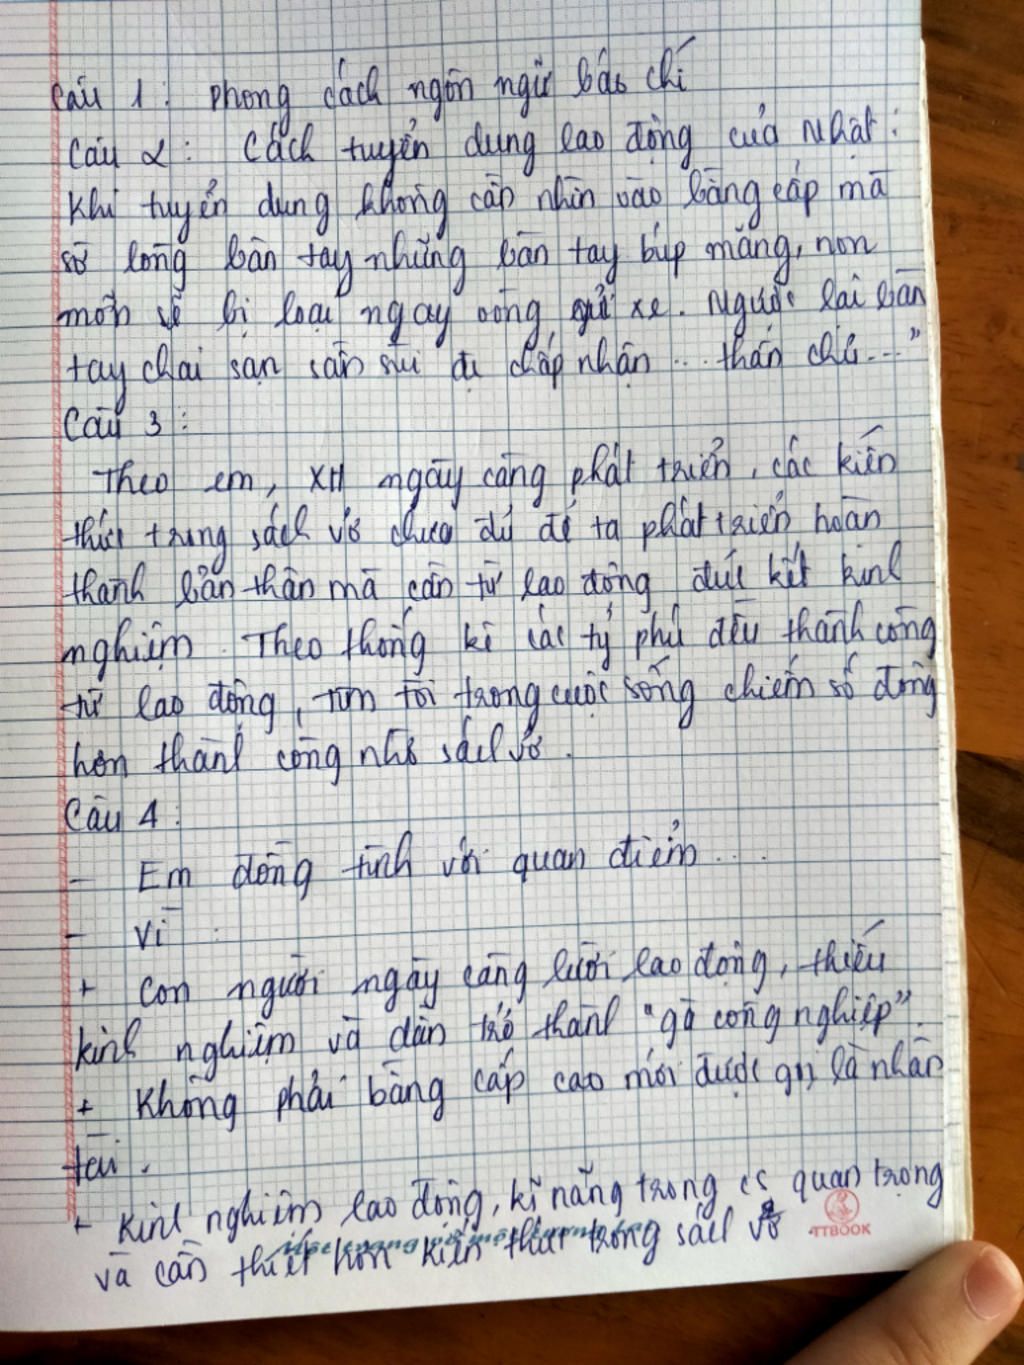 Câu 1: Phong cách ngôn ngữ báo chí
Câu 2: Cách tuyển dụng lao động của Nhật:
Khi tuyển dụng không cần nhìn vào bằng cấp mà
sờ lòng bàn tay những bàn tay búp măng, non
mởn sẽ bị loại ngay vòng gửi xe. Ngược lại bàn
tay chai sạn sần sùi đc chấp nhận ... thần chú..."
Câu 3:
Theo em, XH ngày càng phát triển, các kiến
thức trong sách vở chưa đủ để ta phát triển, hoàn
thành bản thân mà cần từ lao động đúc kết kinh
nghiệm. Theo thống kê các tỷ phú đều thành công
từ lao động, tìm tòi trong cuộc sống chiếm số đông
hơn thành công nhờ sách vở.
Câu 4:
- Em đồng tình với quan điểm ....
- Vì :
+ Con người ngày càng lười lao động, thiếu
kinh nghiệm và dần trở thành "gà công nghiệp".
+ Không phải bằng cấp cao mới được gọi là nhân
tài.
+ Kinh nghiệm lao động, kĩ năng trong cs quan trọng
và cần thiết hơn kiến thức trong sách vở
TTBOOK